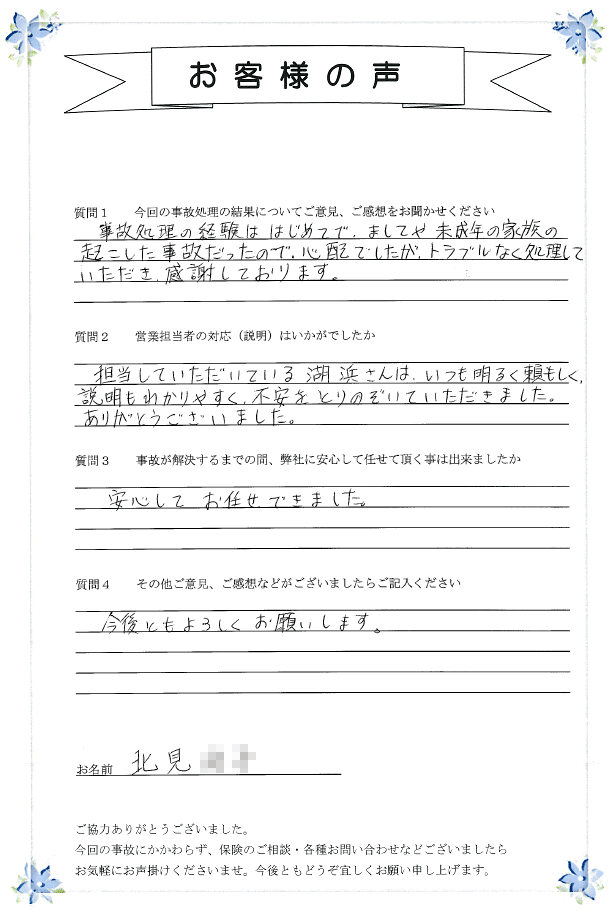 お客様の声
質問１　今回の事故処理の結果についてご意見、ご感想をお聞かせください
事故処理の経験は はじめてで、ましてや 未成年の家族の
起こした事故だったので、心配でしたが、トラブルなく処理して
いただき、感謝しております。
質問２　営業担当者の対応（説明）はいかがでしたか
担当していただいている 湖浜さんは、いつも明るく頼もしく、
説明もわかりやすく、不安をとりのぞいていただきました。
ありがとうございました。
質問３　事故が解決するまでの間、弊社に安心して任せて頂く事は出来ましたか
安心して お任せできました。
質問４　その他ご意見、ご感想などがございましたらご記入ください
今後ともよろしくお願いします。
お名前 北見
ご協力ありがとうございました。
今回の事故にかかわらず、保険のご相談・各種お問い合わせなどございましたら
お気軽にお声掛けくださいませ。今後ともどうぞ宜しくお願い申し上げます。